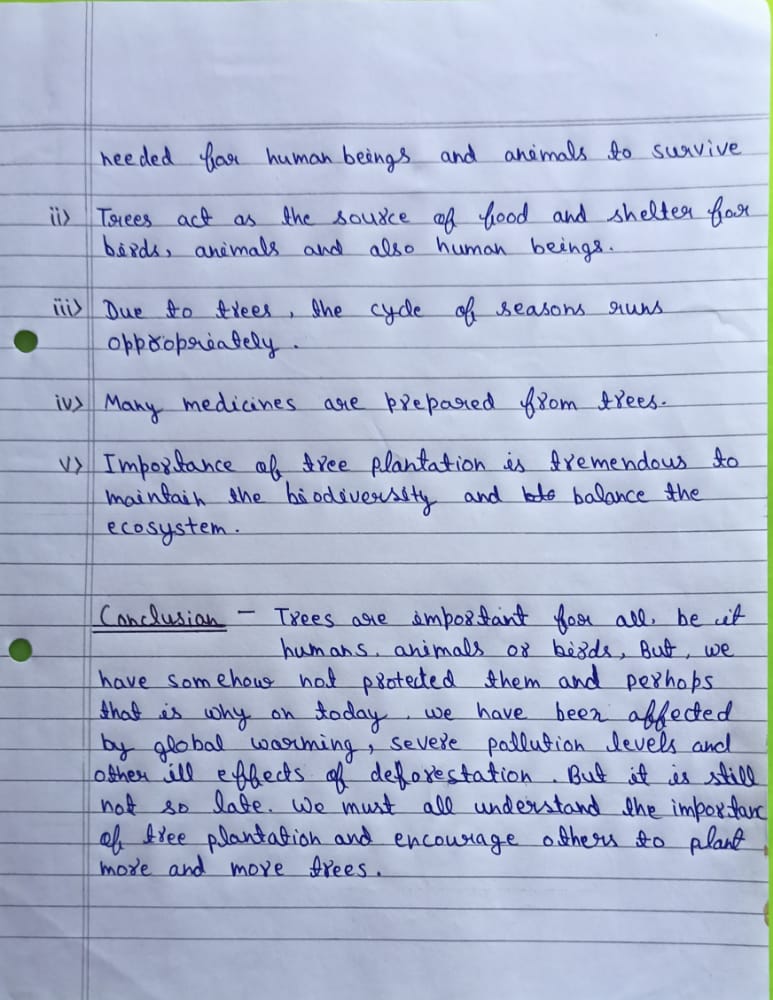 needed for human beings and animals to survive
ii> Trees act as the source of food and shelter for
birds, animals and also human beings.
iii> Due to trees, the cycle of seasons runs
oppropriately.
iv> Many medicines are prepared from trees.
v> Importance of tree plantation is tremendous to
maintain the biodiversity and balance the
ecosystem.
Conclusian - Trees are important for all, be it
humans, animals or birds, But, we
have somehow not protected them and perhops
that is why on today, we have been affected
by global warming, severe pollution levels and
other ill effects of deforestation. But it is still
not so late. We must all understand the importanc
of tree plantation and encourage others to plant
more and more trees.